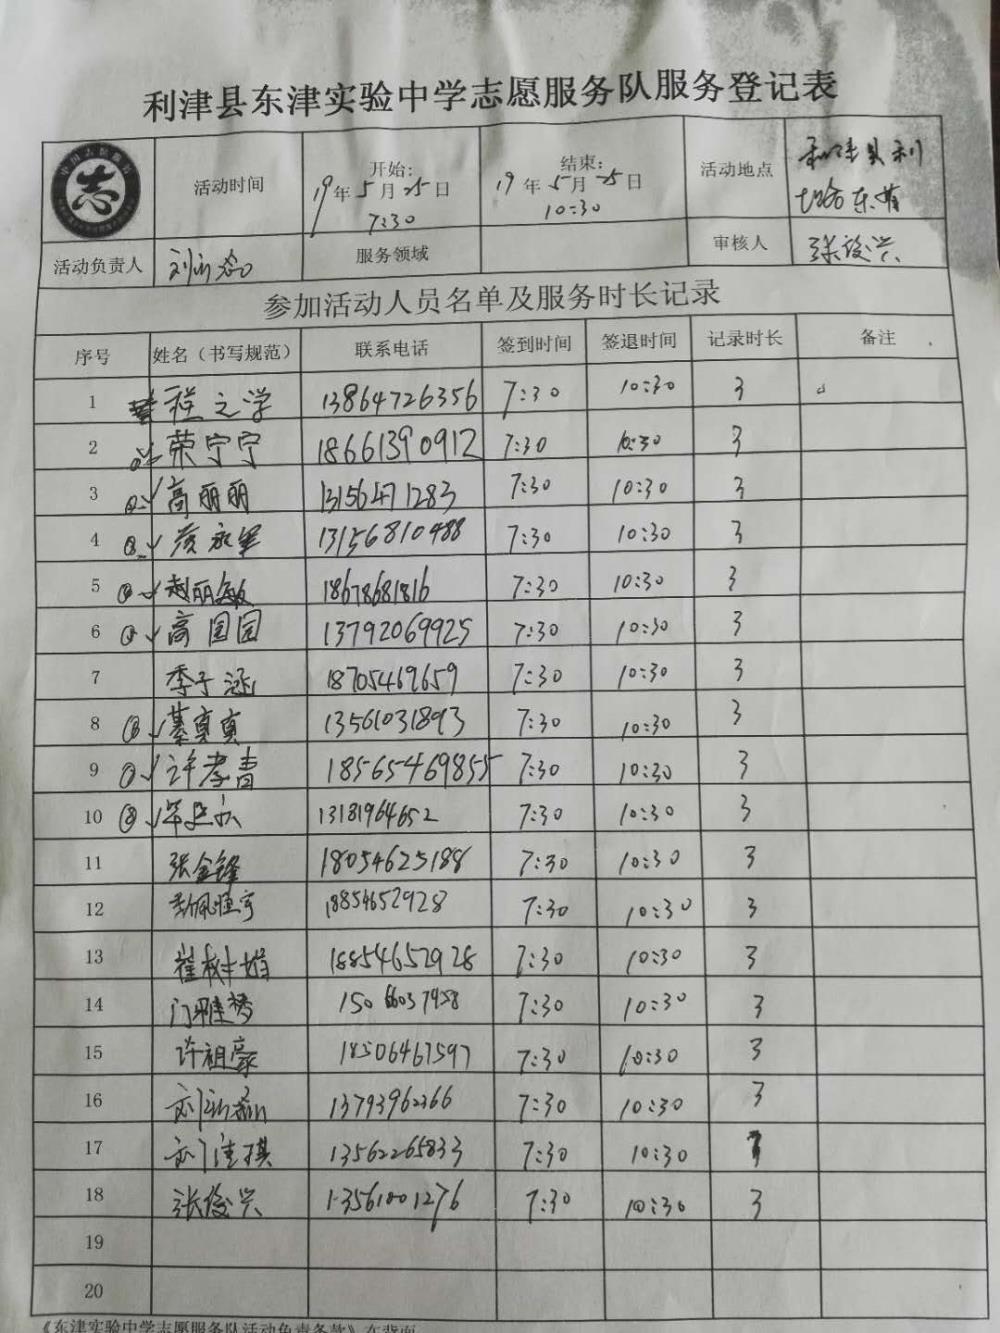 利津县东津实验中学志愿服务队服务登记表
志
活动时间 开始: 19年5月25日 7:30 结束: 19年5月25日 10:30 活动地点 利津县利
东
活动负责人 服务领域 审核人 张俊兴
参加活动人员名单及服务时长记录
序号 姓名（书写规范） 联系电话 签到时间 签退时间 记录时长 备注
1 程之学 13864726356 7:30 10:30 3
2 荣宁宁 18661390912 7:30 10:30 3
3 高丽丽 13156471283 7:30 10:30 3
4 13156810488 7:30 10:30 3
5 赵丽敏 18678681816 7:30 10:30 3
6 高园园 13792069925 7:30 10:30 3
7 季子涵 18705469659 7:30 10:30 3
8 綦真真 13561031893 7:30 10:30 3
9 许孝青 18565469855 7:30 10:30 3
10 13181964652 7:30 10:30 3
11 张金锋 18054625188 7:30 10:30 3
12 18854652928 7:30 10:30 3
13 18854652928 7:30 10:30 3
14 7:30 10:30 3
15 许祖豪 18506467597 7:30 10:30 3
16 13793962366 7:30 10:30 3
17 13562265833 7:30 10:30
18 张俊兴 13561001276 7:30 10:30 3
19
20
《东津实验中学志愿服务队活动负责条款》在背面